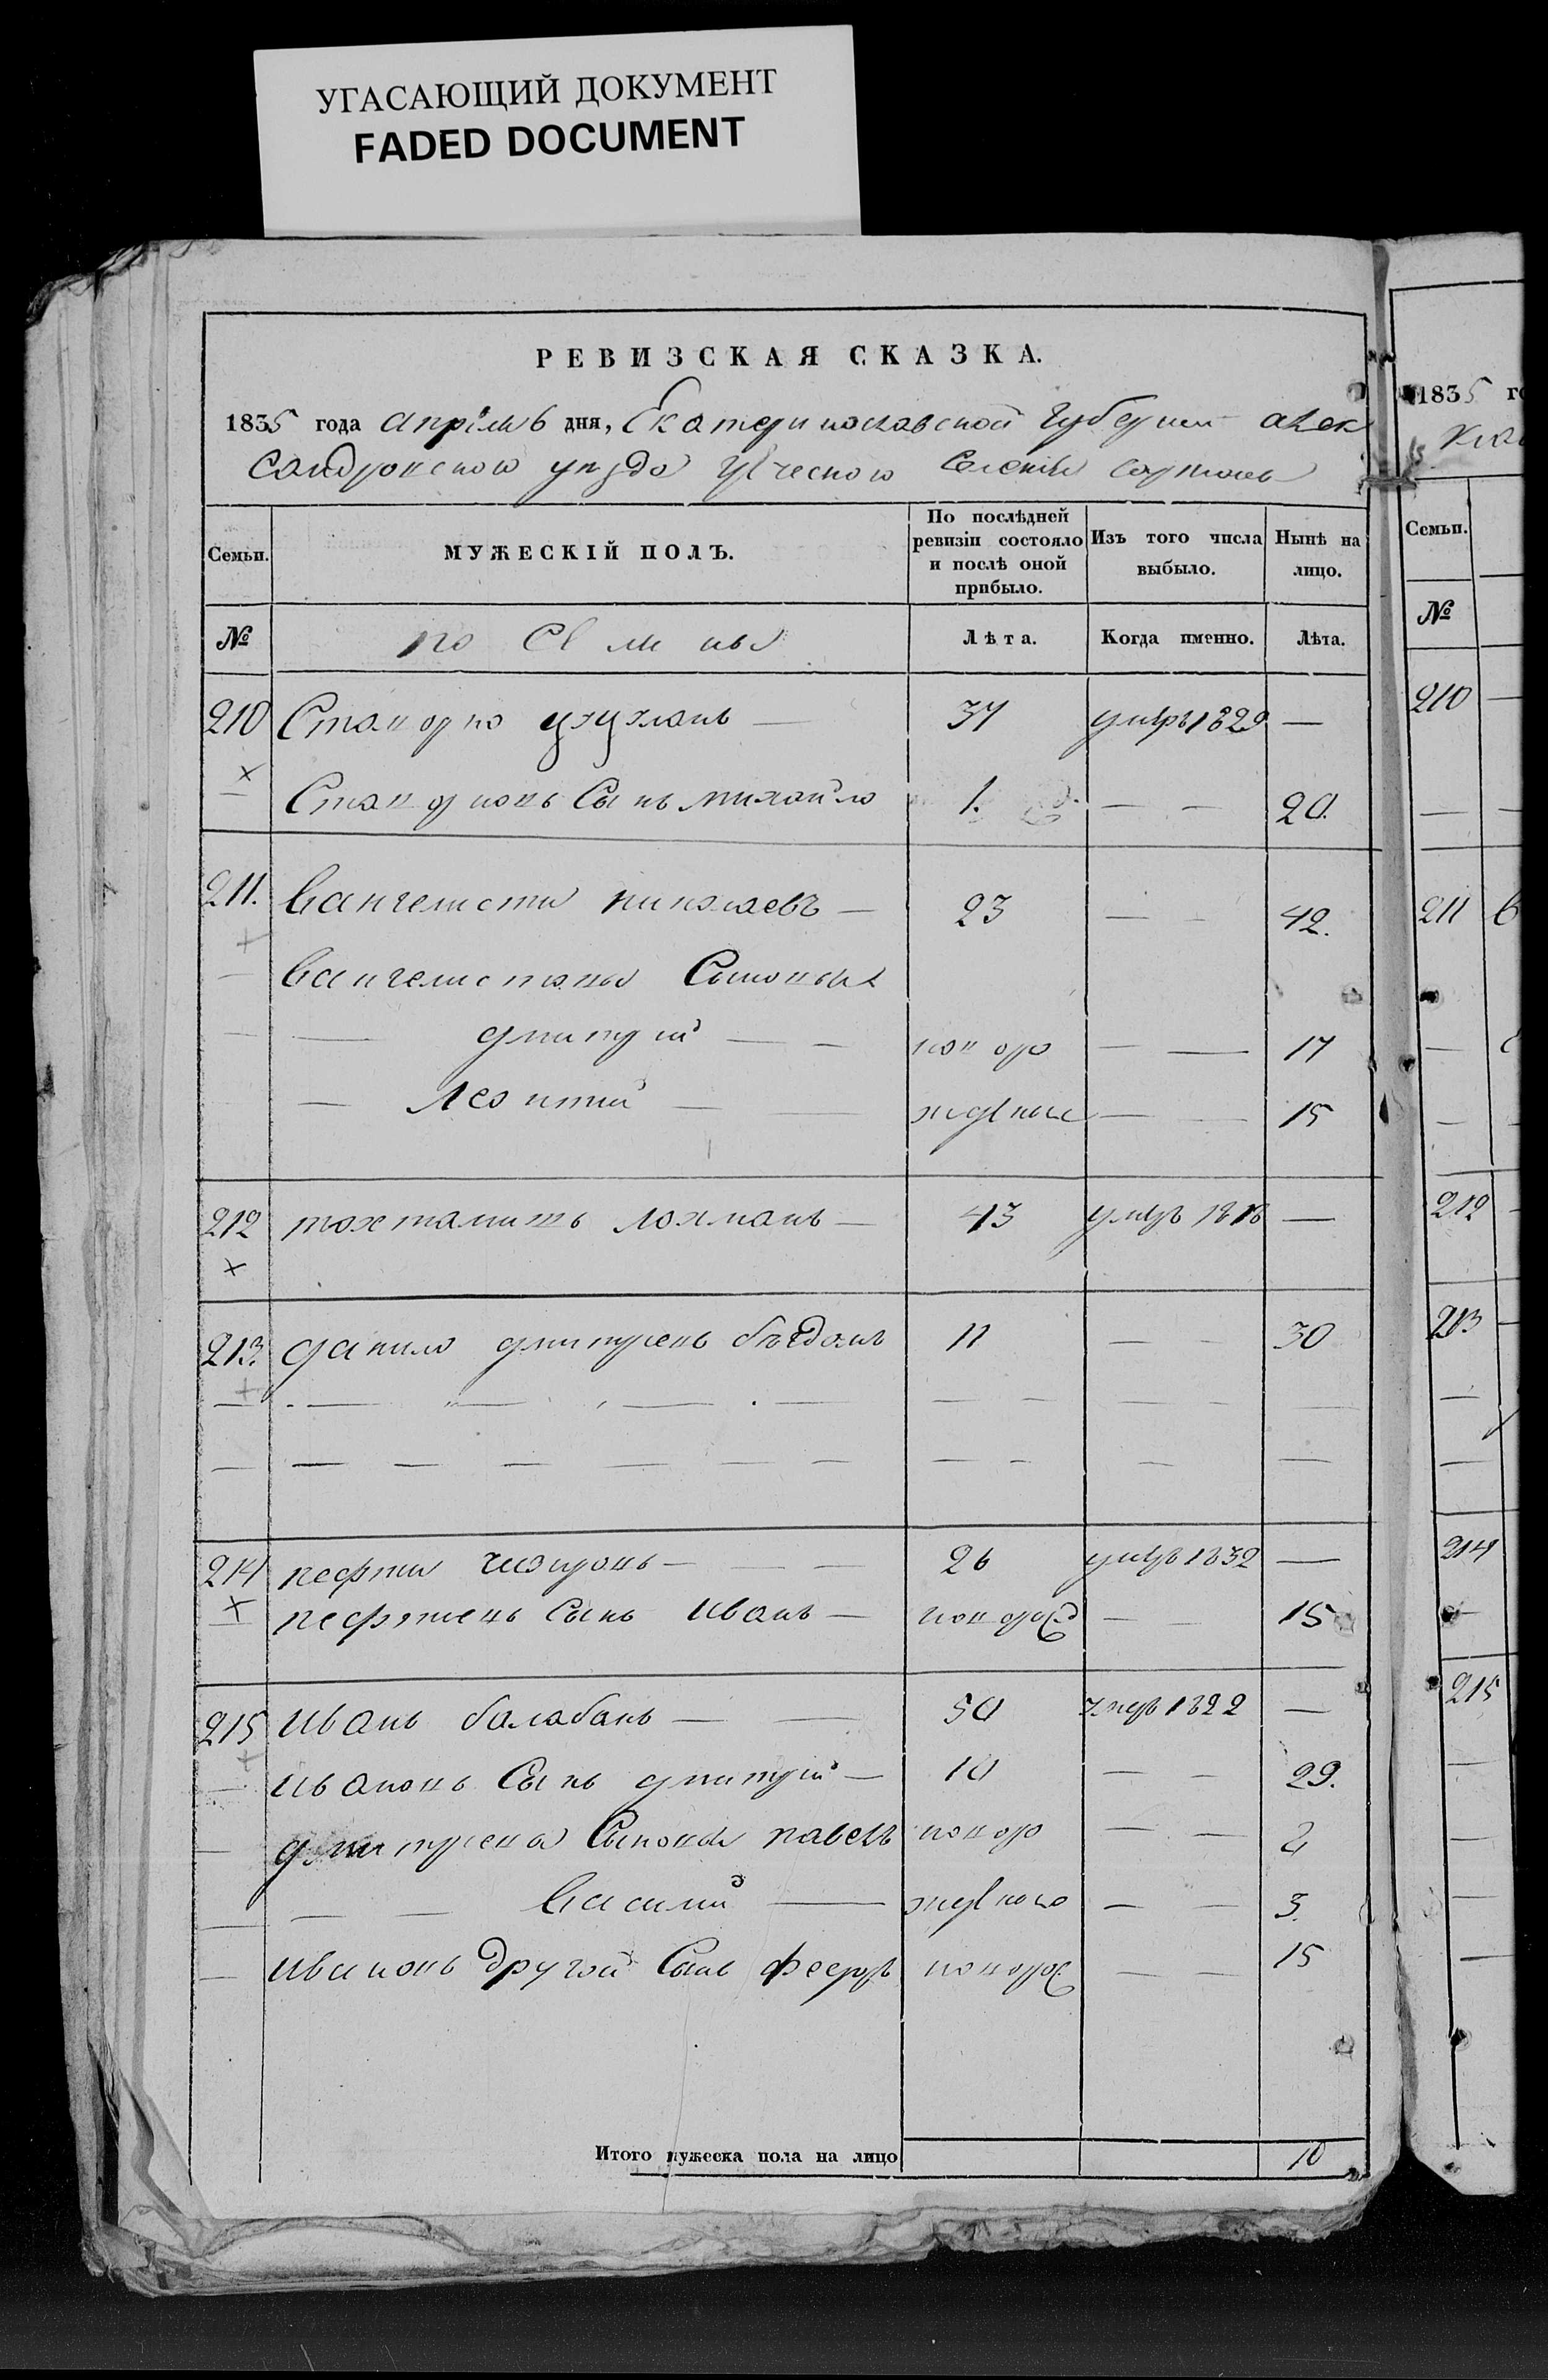 УГАСАЮЩИЙ ДОКУМЕНТ
FADED DOCUMENT
РЕВИЗСКАЯ СКАЗКА.
1835 года апрѣля 6 дня, Екатеринославской Губерніи алек
сандровского уезда Греческого Селенія
Семьи. МУЖЕСКІЙ ПОЛЪ. По послѣдней ревизіи состояло и послѣ оной прибыло. Изъ того числа выбыло. Нынѣ на лицо.
№ Лѣта. Когда именно. Лѣта.
210 умеръ 1829 —
Сынъ михайло 1. — — 20.
211. Вангелисти николаевъ — 23 — — 42.
Вангелистовы Сыновья
— дмитрій — — новоро — — 17
— Леонтій — — жденные — — 15
212 тохтамишъ лохманъ — 43 умеръ 1816 —
213. данило дмитревъ 11 — — 30
214 — — — 26 умеръ 1832 —
Сынъ Иванъ — новорож — — 15
215 Иванъ балабанъ — — 50 умеръ 1822 —
— Ивановъ Сынъ дмитрій — 10 — — 29.
— дмитрева Сыновья павелъ новоро — — 2
— — — Василій — жденые — — 3.
— Ивановъ другой Сынъ феодръ новорож — — 15
Итого мужеска пола на лицо 10
1835 го
Семьи.
№
210
211
212
213
214
215